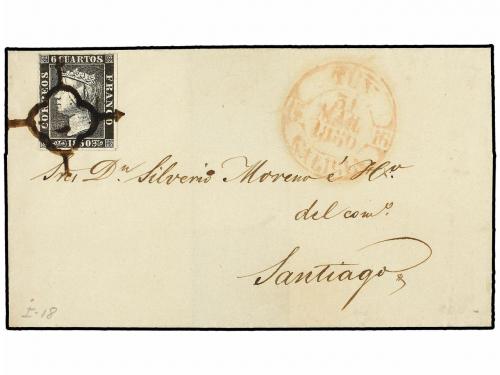 6 CUARTOS
CORREOS
FRANCO
1850
TUY
31
MAR
1850
GALICIA
Sres Dn Silverio Moreno é Ho
del como.
Santiago
I-18